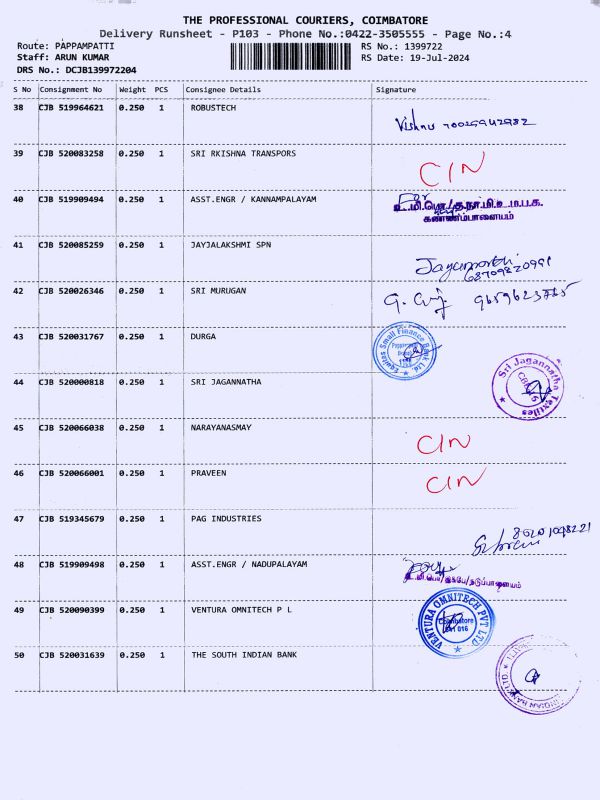 THE PROFESSIONAL COURIERS, COIMBATORE
Delivery Runsheet - P103 - Phone No.:0422-3505555 - Page No.:4
Route: PAPPAMPATTI RS No.: 1399722
Staff: ARUN KUMAR RS Date: 19-Jul-2024
DRS No.: DCJB139972204
S No Consignment No Weight PCS Consignee Details Signature
38 CJB 519964621 0.250 1 ROBUSTECH
Vishnu
39 CJB 520083258 0.250 1 SRI RKISHNA TRANSPORS
CIN
40 CJB 519909494 0.250 1 ASST.ENGR / KANNAMPALAYAM
For
கண்ணம்பாளையம்
41 CJB 520085259 0.250 1 JAYJALAKSHMI SPN
42 CJB 520026346 0.250 1 SRI MURUGAN
43 CJB 520031767 0.250 1 DURGA
Equitas Small Finance Bank Ltd.
44 CJB 520000818 0.250 1 SRI JAGANNATHA
Sri Jagannatha Textiles
45 CJB 520066038 0.250 1 NARAYANASMAY
CIN
46 CJB 520066001 0.250 1 PRAVEEN
CIN
47 CJB 519345679 0.250 1 PAG INDUSTRIES
48 CJB 519909498 0.250 1 ASST.ENGR / NADUPALAYAM
49 CJB 520090399 0.250 1 VENTURA OMNITECH P L
VENTURA OMNITECH PVT LTD
Coimbatore
641 016
50 CJB 520031639 0.250 1 THE SOUTH INDIAN BANK